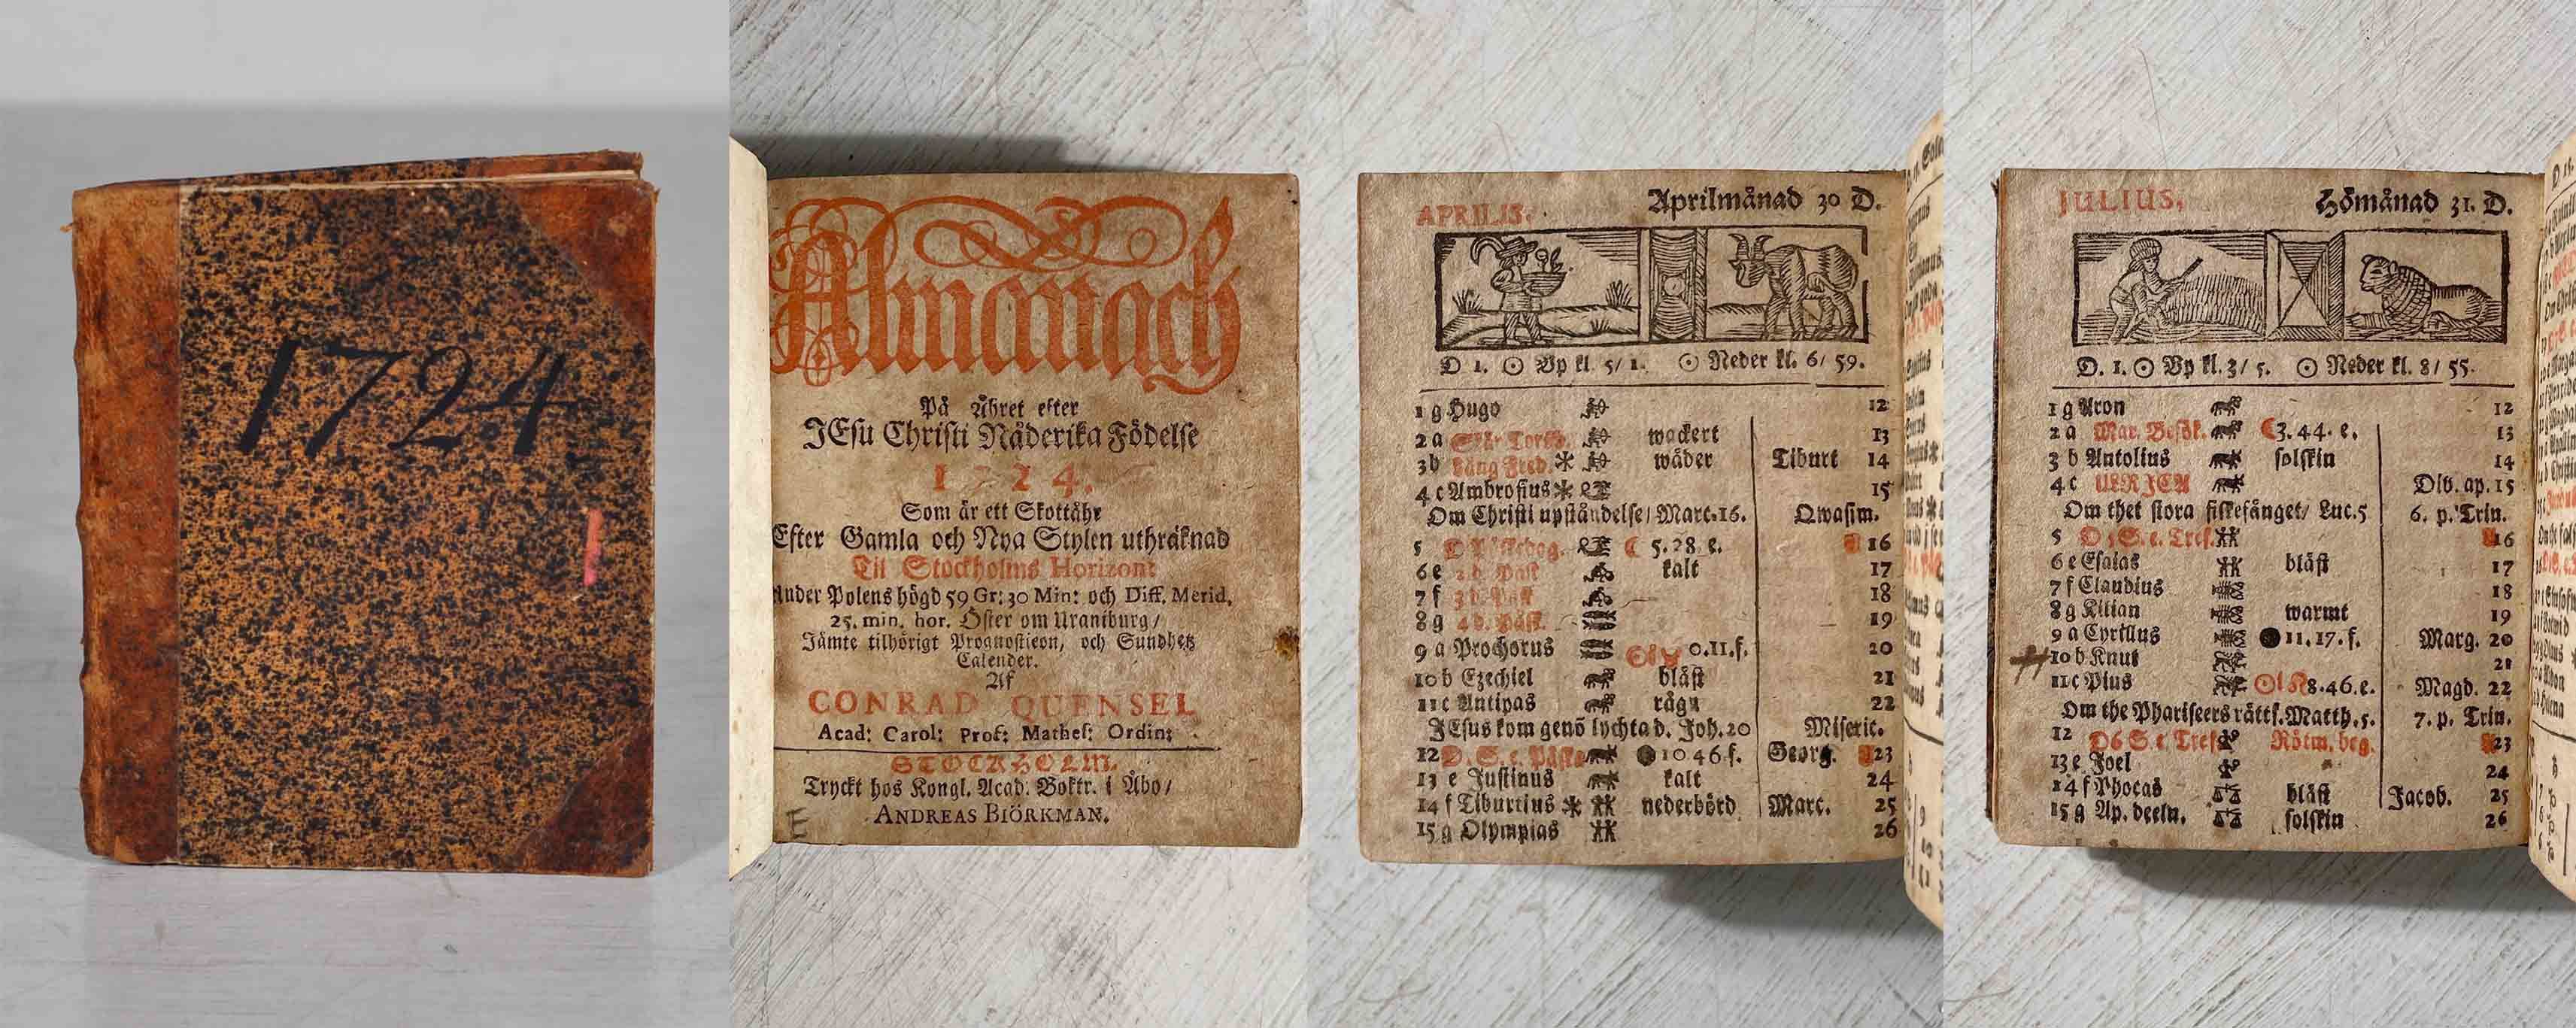 1724
Almanach
På Åhret efter
JEsu Christi Nåderika Födelse
1724.
Som är ett Skottåhr
Efter Gamla och Nya Stylen uthräknad
Til Stockholms Horizont
Under Polens högd 59 Gr: 30 Min: och Diff. Merid.
25. min. hor. Öster om Uraniburg/
Jämte tilhörigt Prognosticon, och Sundhetz
Calender.
Af
CONRAD QUENSEL
Acad: Carol: Prof: Mathes: Ordin:
STOCKHOLM.
Tryckt hos Kongl. Acad. Boktr. i Åbo/
ANDREAS BIÖRKMAN.
E
APRILIS. Aprilmånad 30 D.
D 1. ☉ Vp kl. 5/ 1. ☉ Neder kl. 6/ 59.
1 g Hugo 12
2 a wackert 13
3 b Lång Fred. wäder Tiburt 14
4 c Ambrosius 15
Om Christi upståndelse/ Marc. 16. Qwasim.
5 D Påskedag. ☾ 5.28. e. 16
6 e 2 d. Påsk kalt 17
7 f 3 d. Påsk 18
8 g 4 d. Påsk. 19
9 a Prochorus 0.11.f. 20
10 b Ezechiel blåst 21
11 c Antipas rägn 22
JEsus kom genō lychta d. Joh. 20 Miseric.
12 D. 1. S. e. Påska 10 46 f. Georg. 23
13 e Justinus kalt 24
14 f Tiburtius nederbörd Marc. 25
15 g Olympias 26
JULIUS. Hömånad 31. D.
D. 1. ☉ Vp kl. 3/ 5. ☉ Neder kl. 8/ 55.
1 g Aron 12
2 a Mar. Besök. ☾ 3. 44. e. 13
3 b Antolius solskin 14
4 c ULRICA Div. ap. 15
Om thet stora fiskefänget/ Luc. 5 6. p. Trin.
5 D 5 S. e. Tref. 16
6 e Esaias blåst 17
7 f Claudius 18
8 g Kilian warmt 19
9 a Cyrillus 11. 17. f. Marg. 20
10 b Knut 21
11 c Pius 8.46.e. Magd. 22
Om the Phariseers rättf. Matth. 5. 7. p. Trin.
12 D 6 S. e. Tref Rötm. beg. 23
13 e Joel 24
14 f Phocas blåst Jacob. 25
15 g Ap. deeln. solskin 26